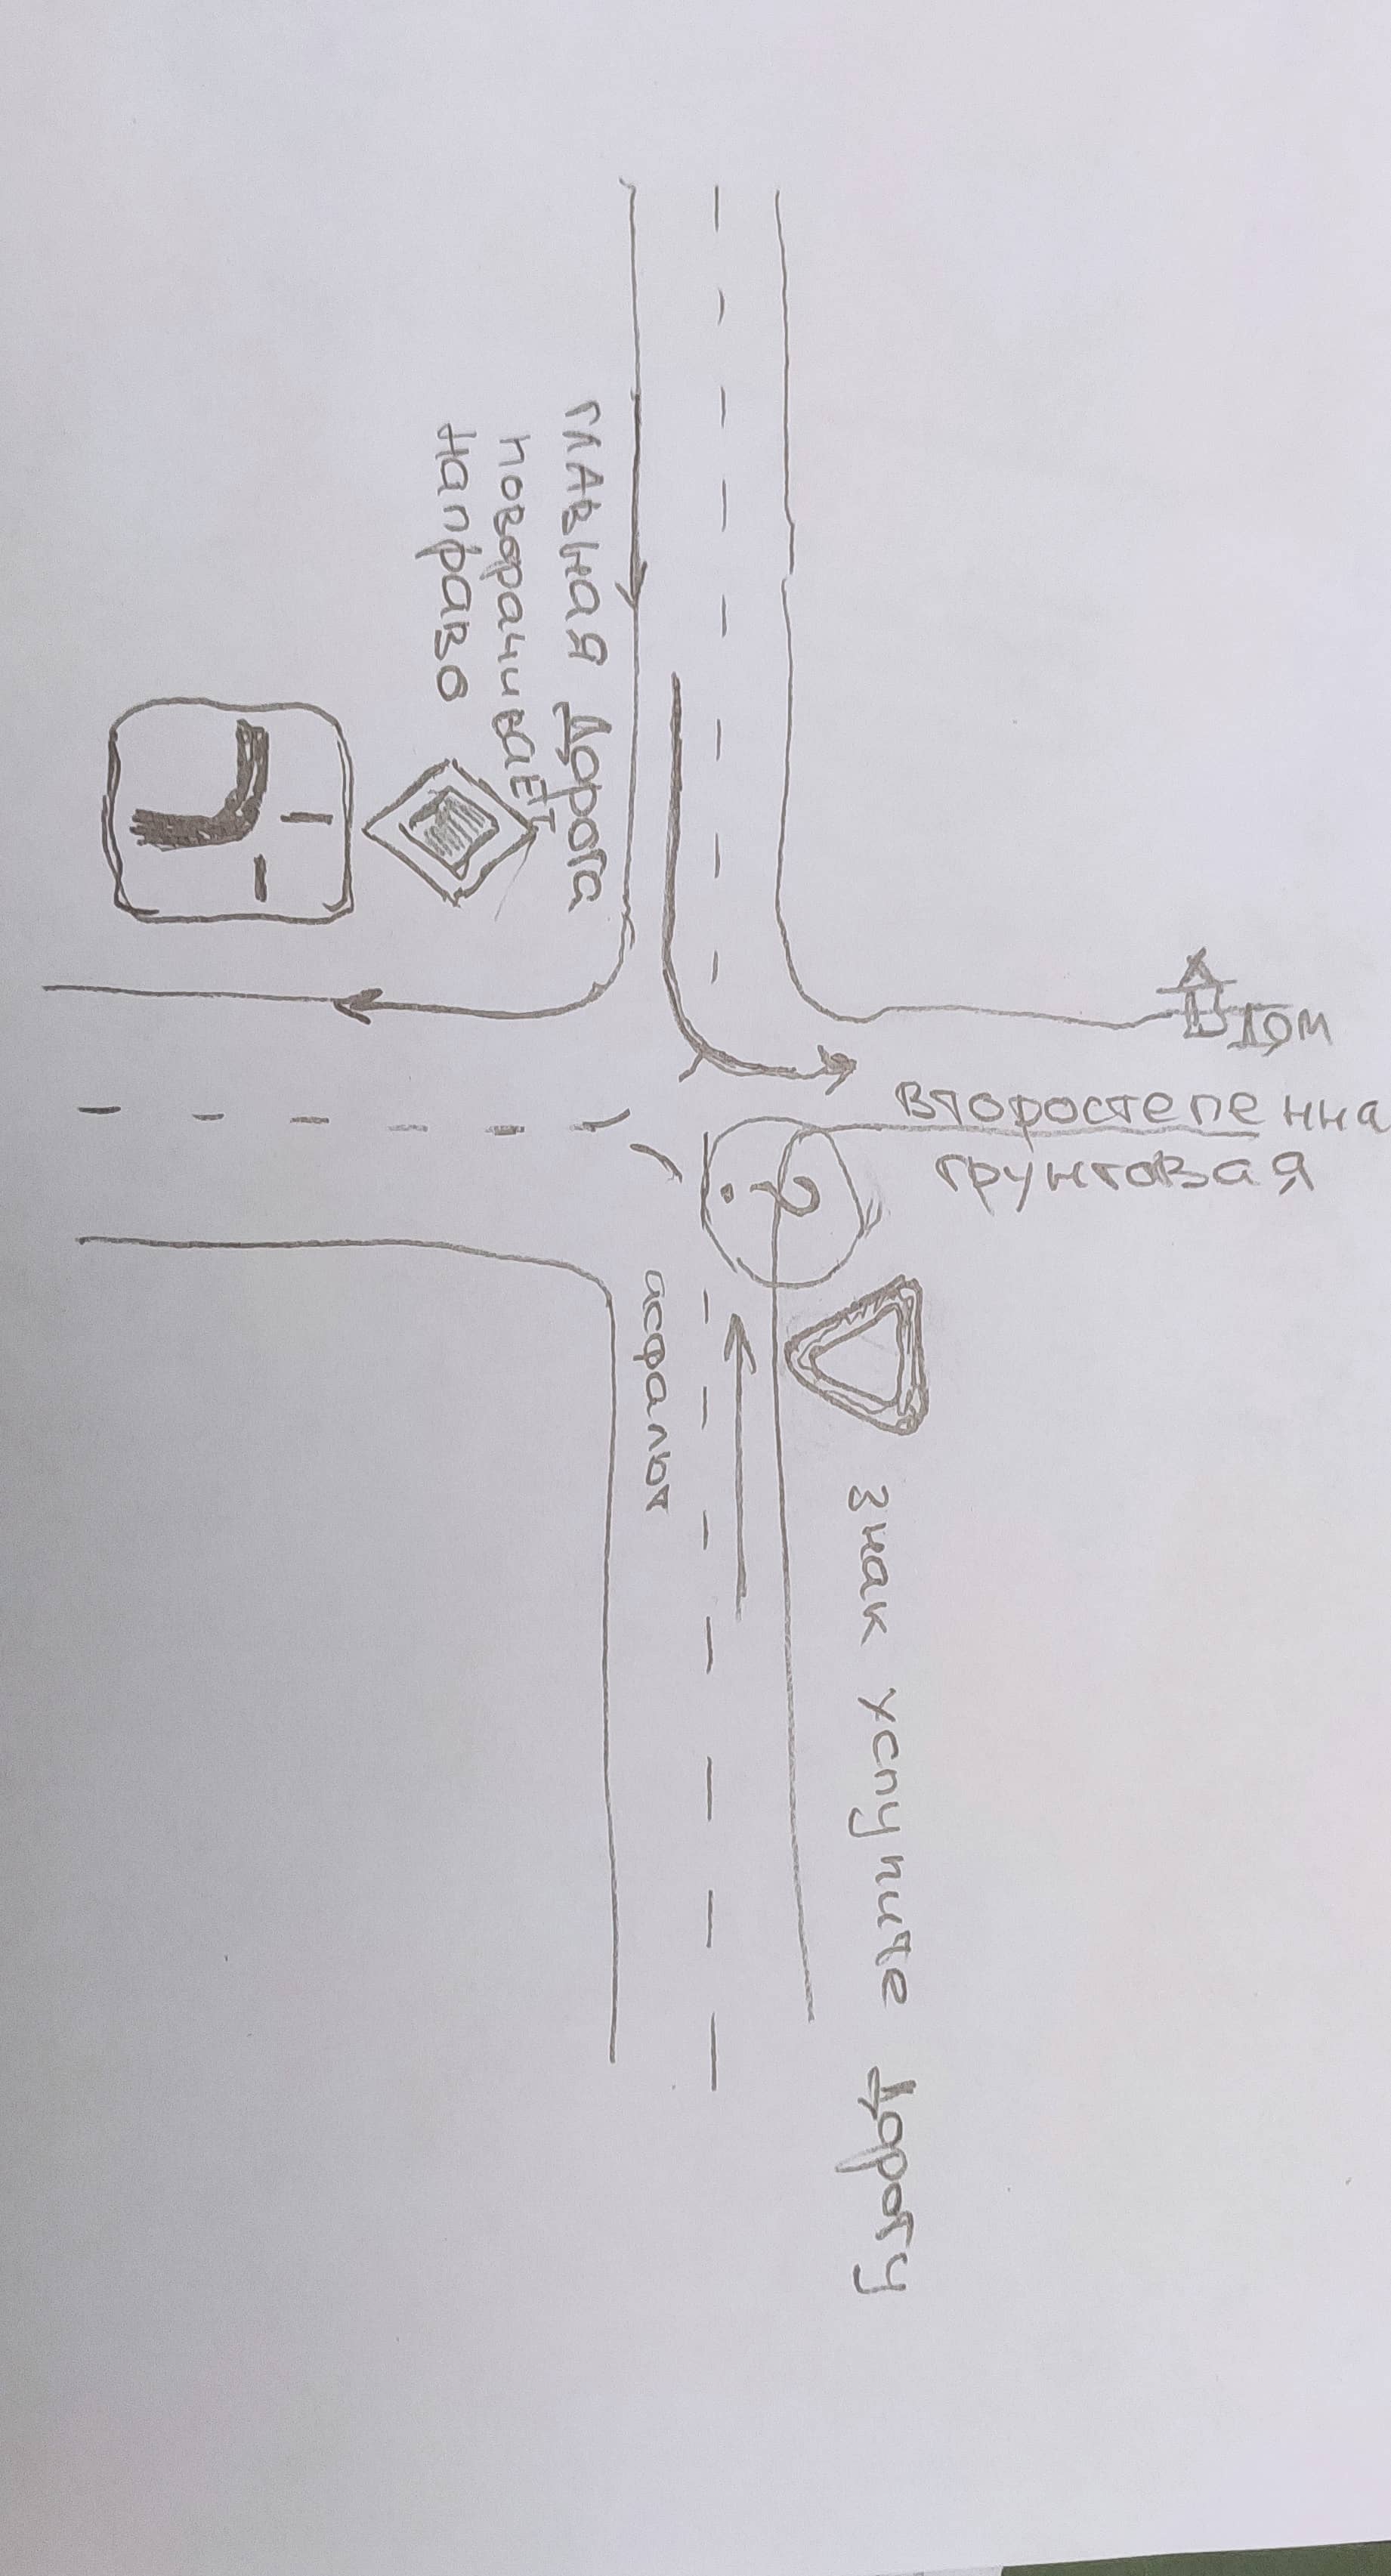 главная дорога
поворачивает
направо
Дом
второстепенна
грунтовая
?
асфальт
знак успупите дорогу